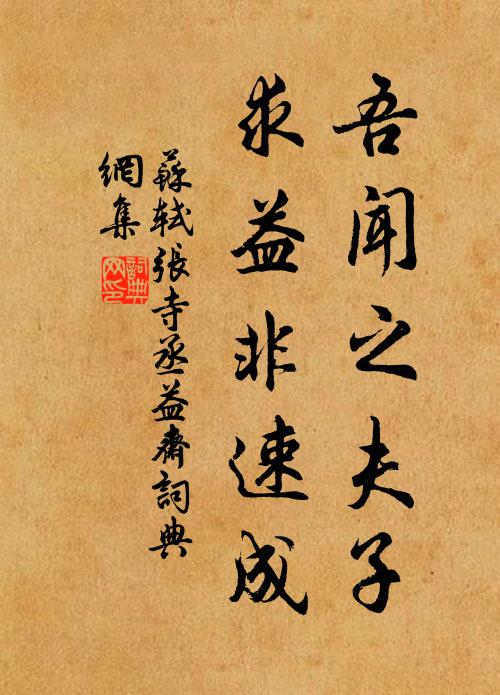 吾聞之夫子
求益非速成
蘇軾張寺丞益齋詞典
網集
詞典
网印